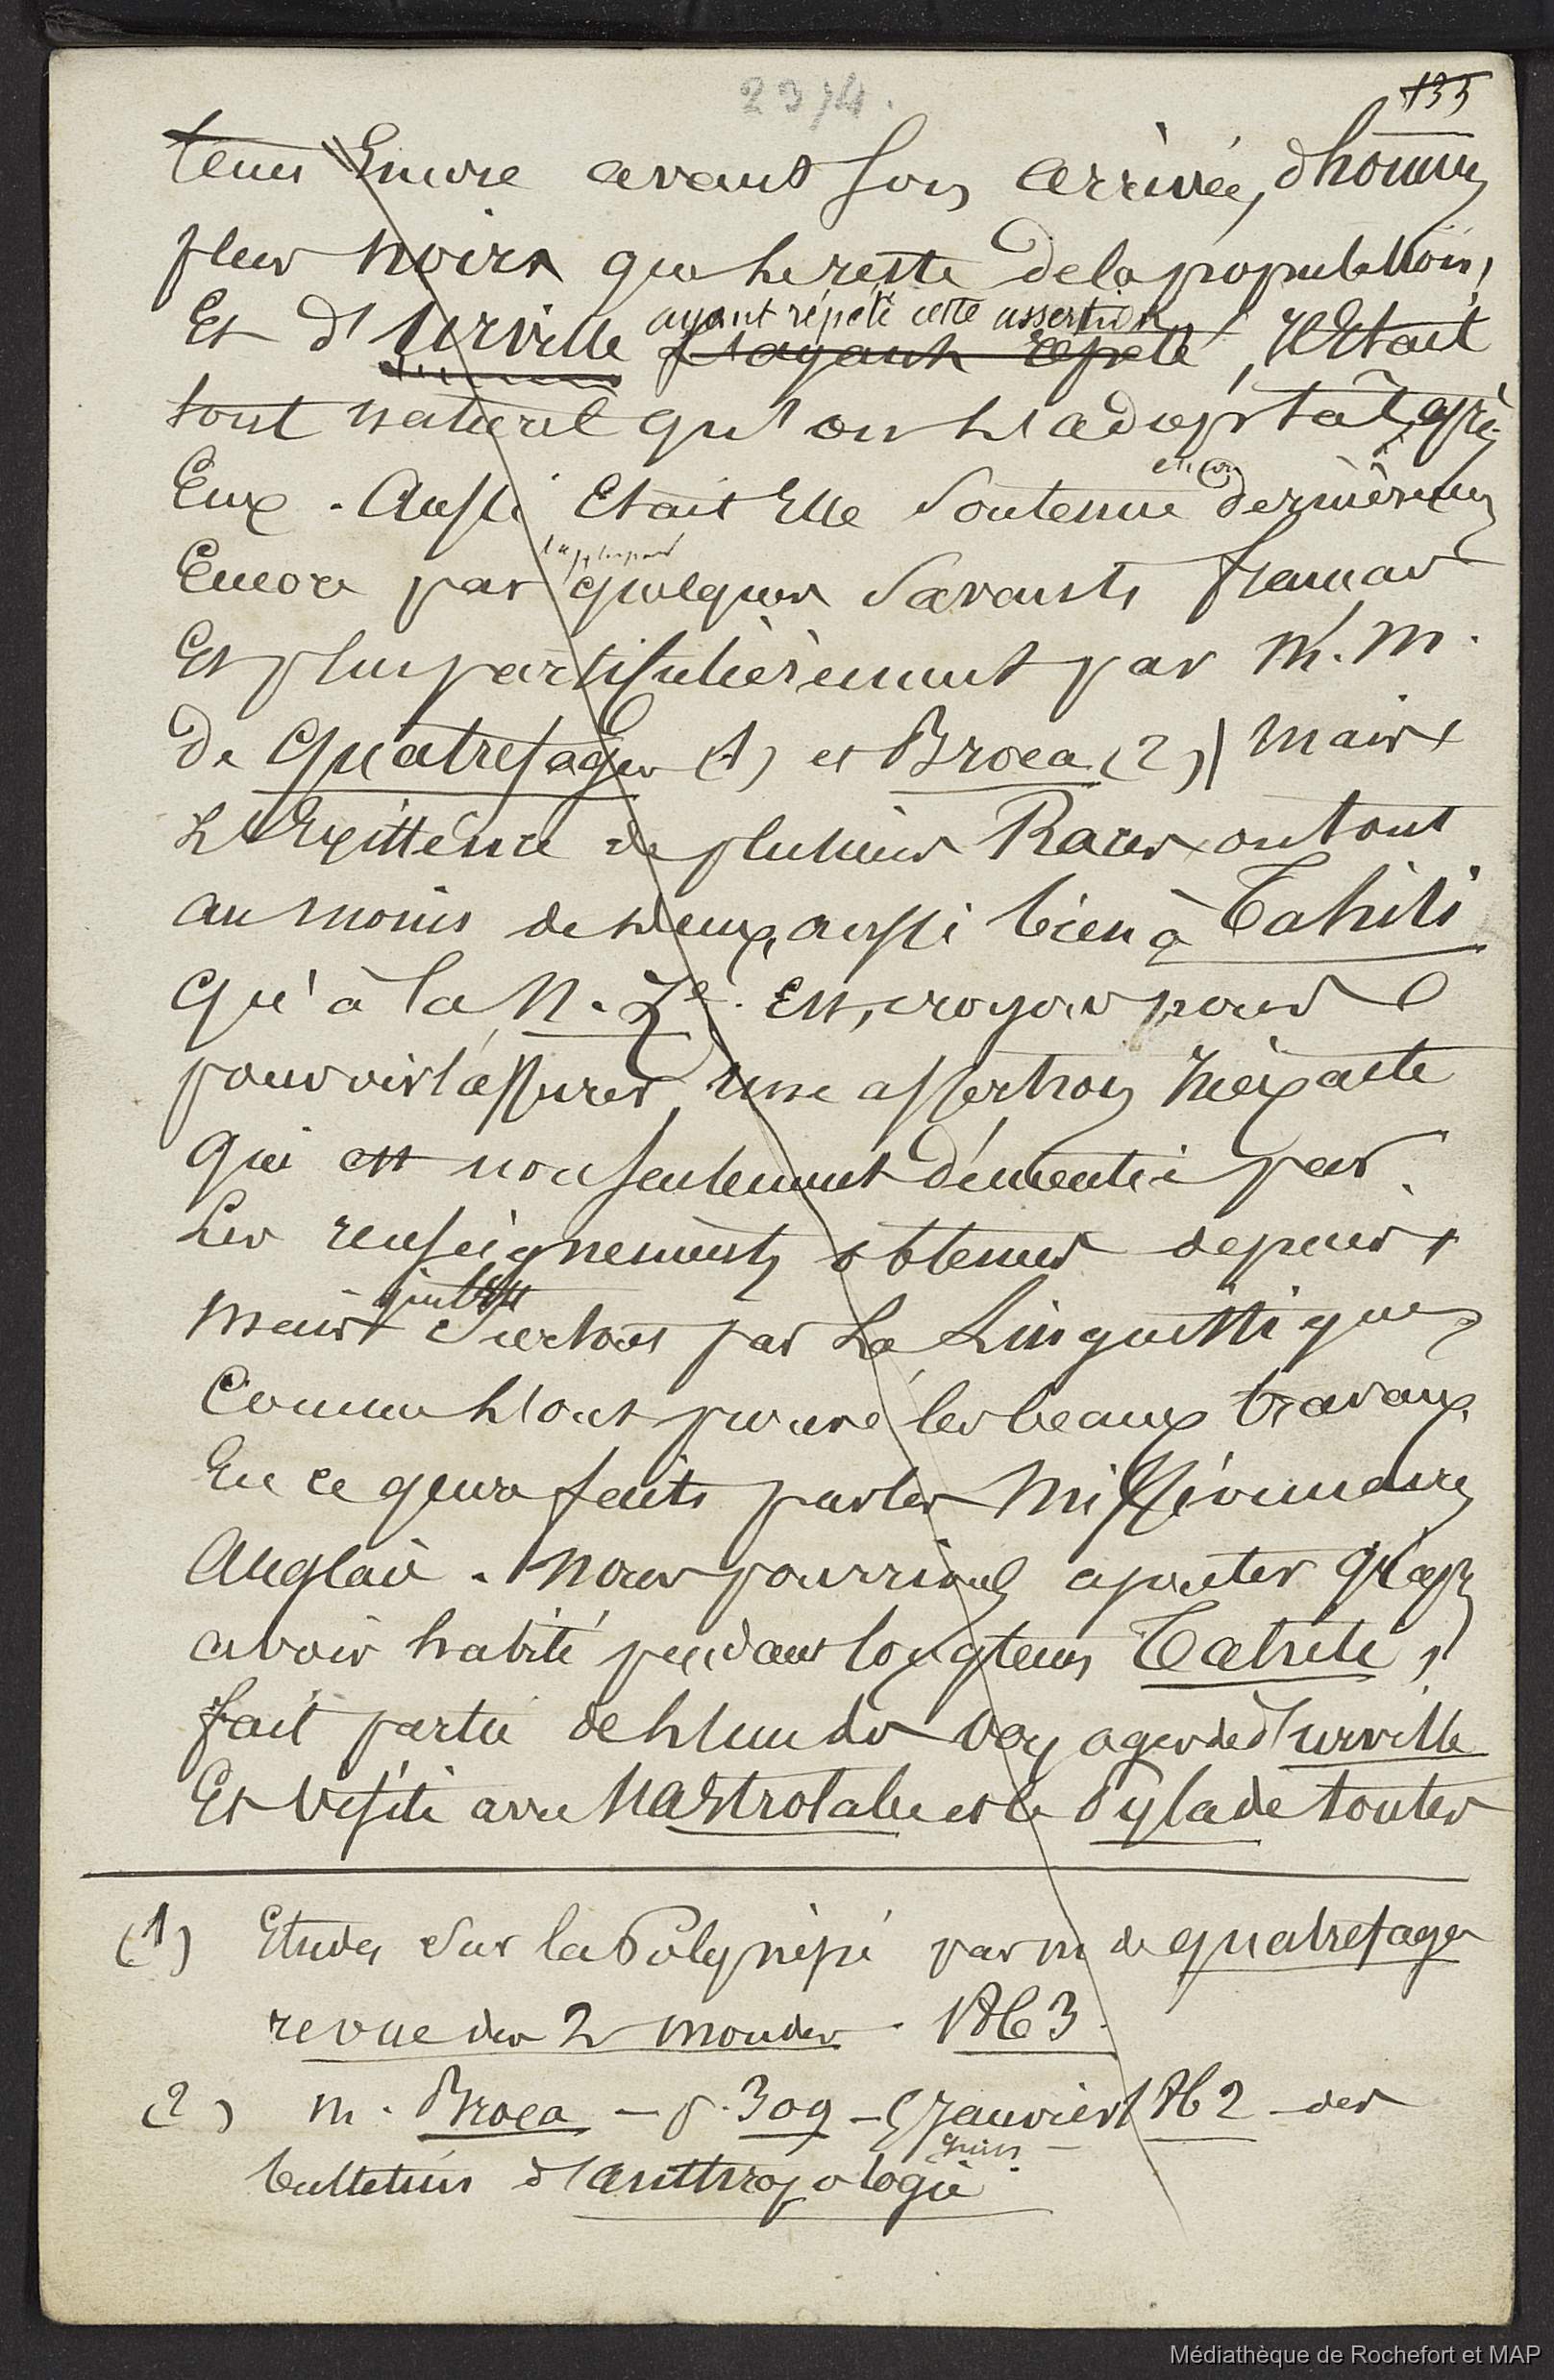 2974.
135
tenus Encore avant son arrivée, d'hommes
plus noirs que le reste de la population,
ayant répété cette assertion
Et d'Urville l'ayant répété, il était
tout naturel qu'on l'adoptât après
encor
Eux. Aussi était Elle soutenue dernièrement
Encore par quelques savants français
Et plus particulièrement par M. M.
de Quatrefages (1) et Broca (2) | mais
L'Existence de plusieurs Races ou tout
au moins de deux, aussi bien à Tahiti
qu'à la N. Zde. Est, croyons nous
pouvoir l'assurer, une assertion inéxacte
qui est non seulement démentie par
Les renseignements obtenus depuis
mais surtout par La Linguistique
Comme l'ont prouvé les beaux travaux
En ce genre faits par les Missionnaires
Anglais. Nous pourrions ajouter qu'après
avoir habité pendant longtems Tahiti,
fait partie de l'un des voyages de d'Urville
Et visité avec l'Astrolabe et le Pylade toutes
(1) Etudes sur la Polynésie par M de quatrefages
revue des 2 mondes. 1863.
(2) M. Broca - p. 309 - Janvier 1862 - des
bulletins d'anthropologie
Médiathèque de Rochefort et MAP